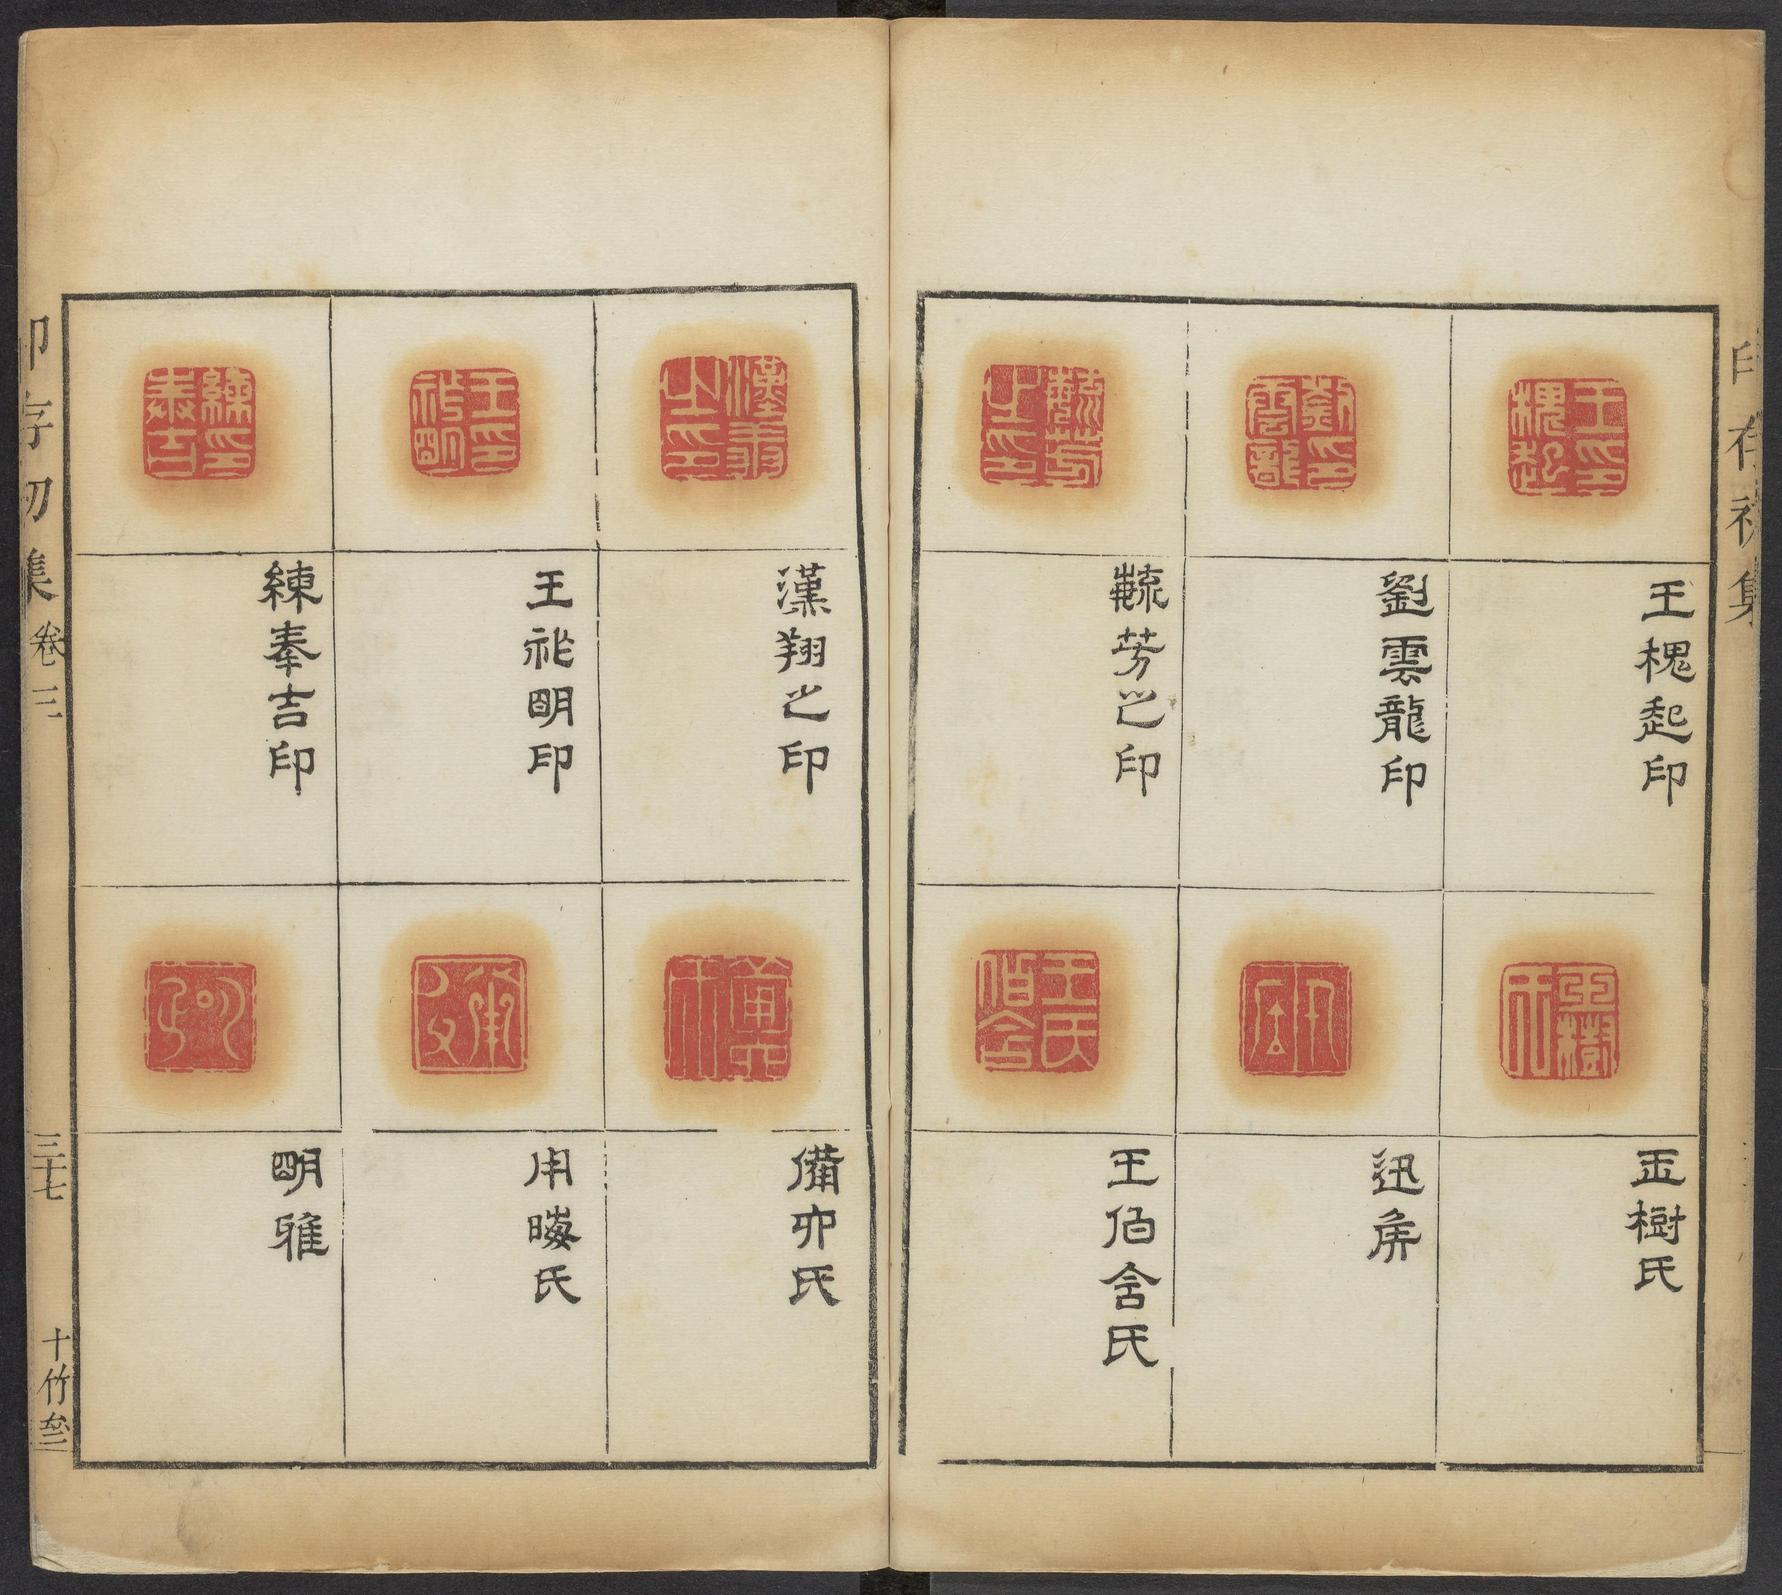 印存初集
王槐起印
劉雲龍印
蓺芳之印
玉樹氏
迅矦
王伯含氏
漢翔之印
王祚明印
練奉吉印
備卯氏
用晦氏
明雅
印存初集 卷三
三十七
十竹